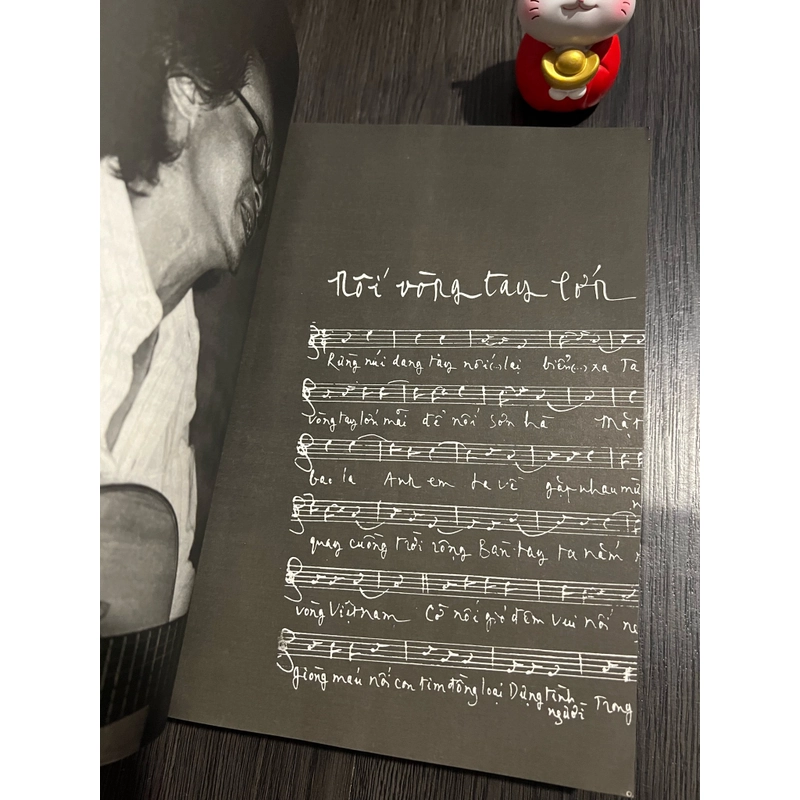 nối vòng tay lớn
Rừng núi dang tay nối (..) lại biển (..) xa Ta
vòng tay lớn mãi để nối sơn hà Mặt
bao la Anh em ta về gặp nhau
quay cuồng trời rộng Bàn tay ta nắm
vòng Việt nam Cờ nối gió đêm vui nối
giòng máu nối con tim đồng loại Dựng tình người Trong